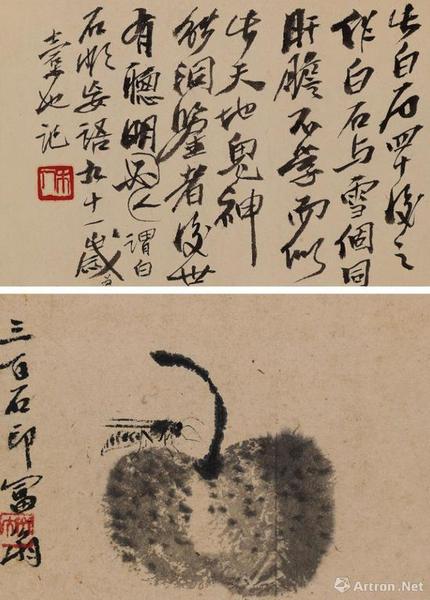 此白石四十後之
作白石与雪個同
肝膽不學而似
此天地鬼神
能洞鑒者後世
有聰明必人謂白
石妄語九十一歲
記
三百石印富翁
Artron.Net